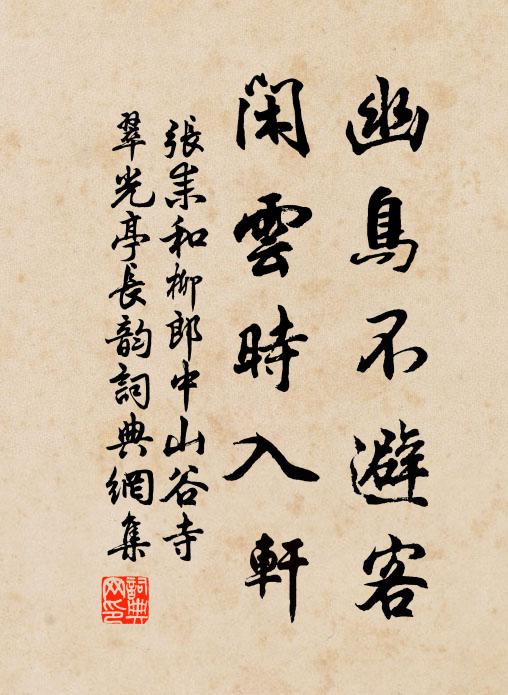 幽鳥不避客
閑雲時入軒
張耒和柳郎中山谷寺
翠光亭長韵詞典網集
詞典网印